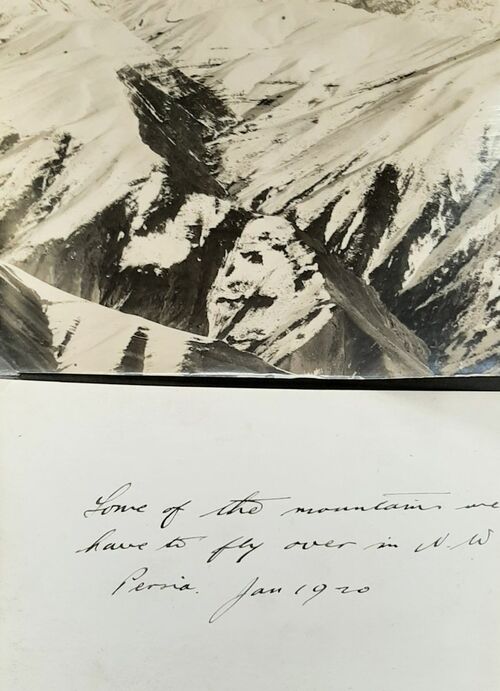 Some of the mountains we
have to fly over in N.W
Persia. Jan 1920